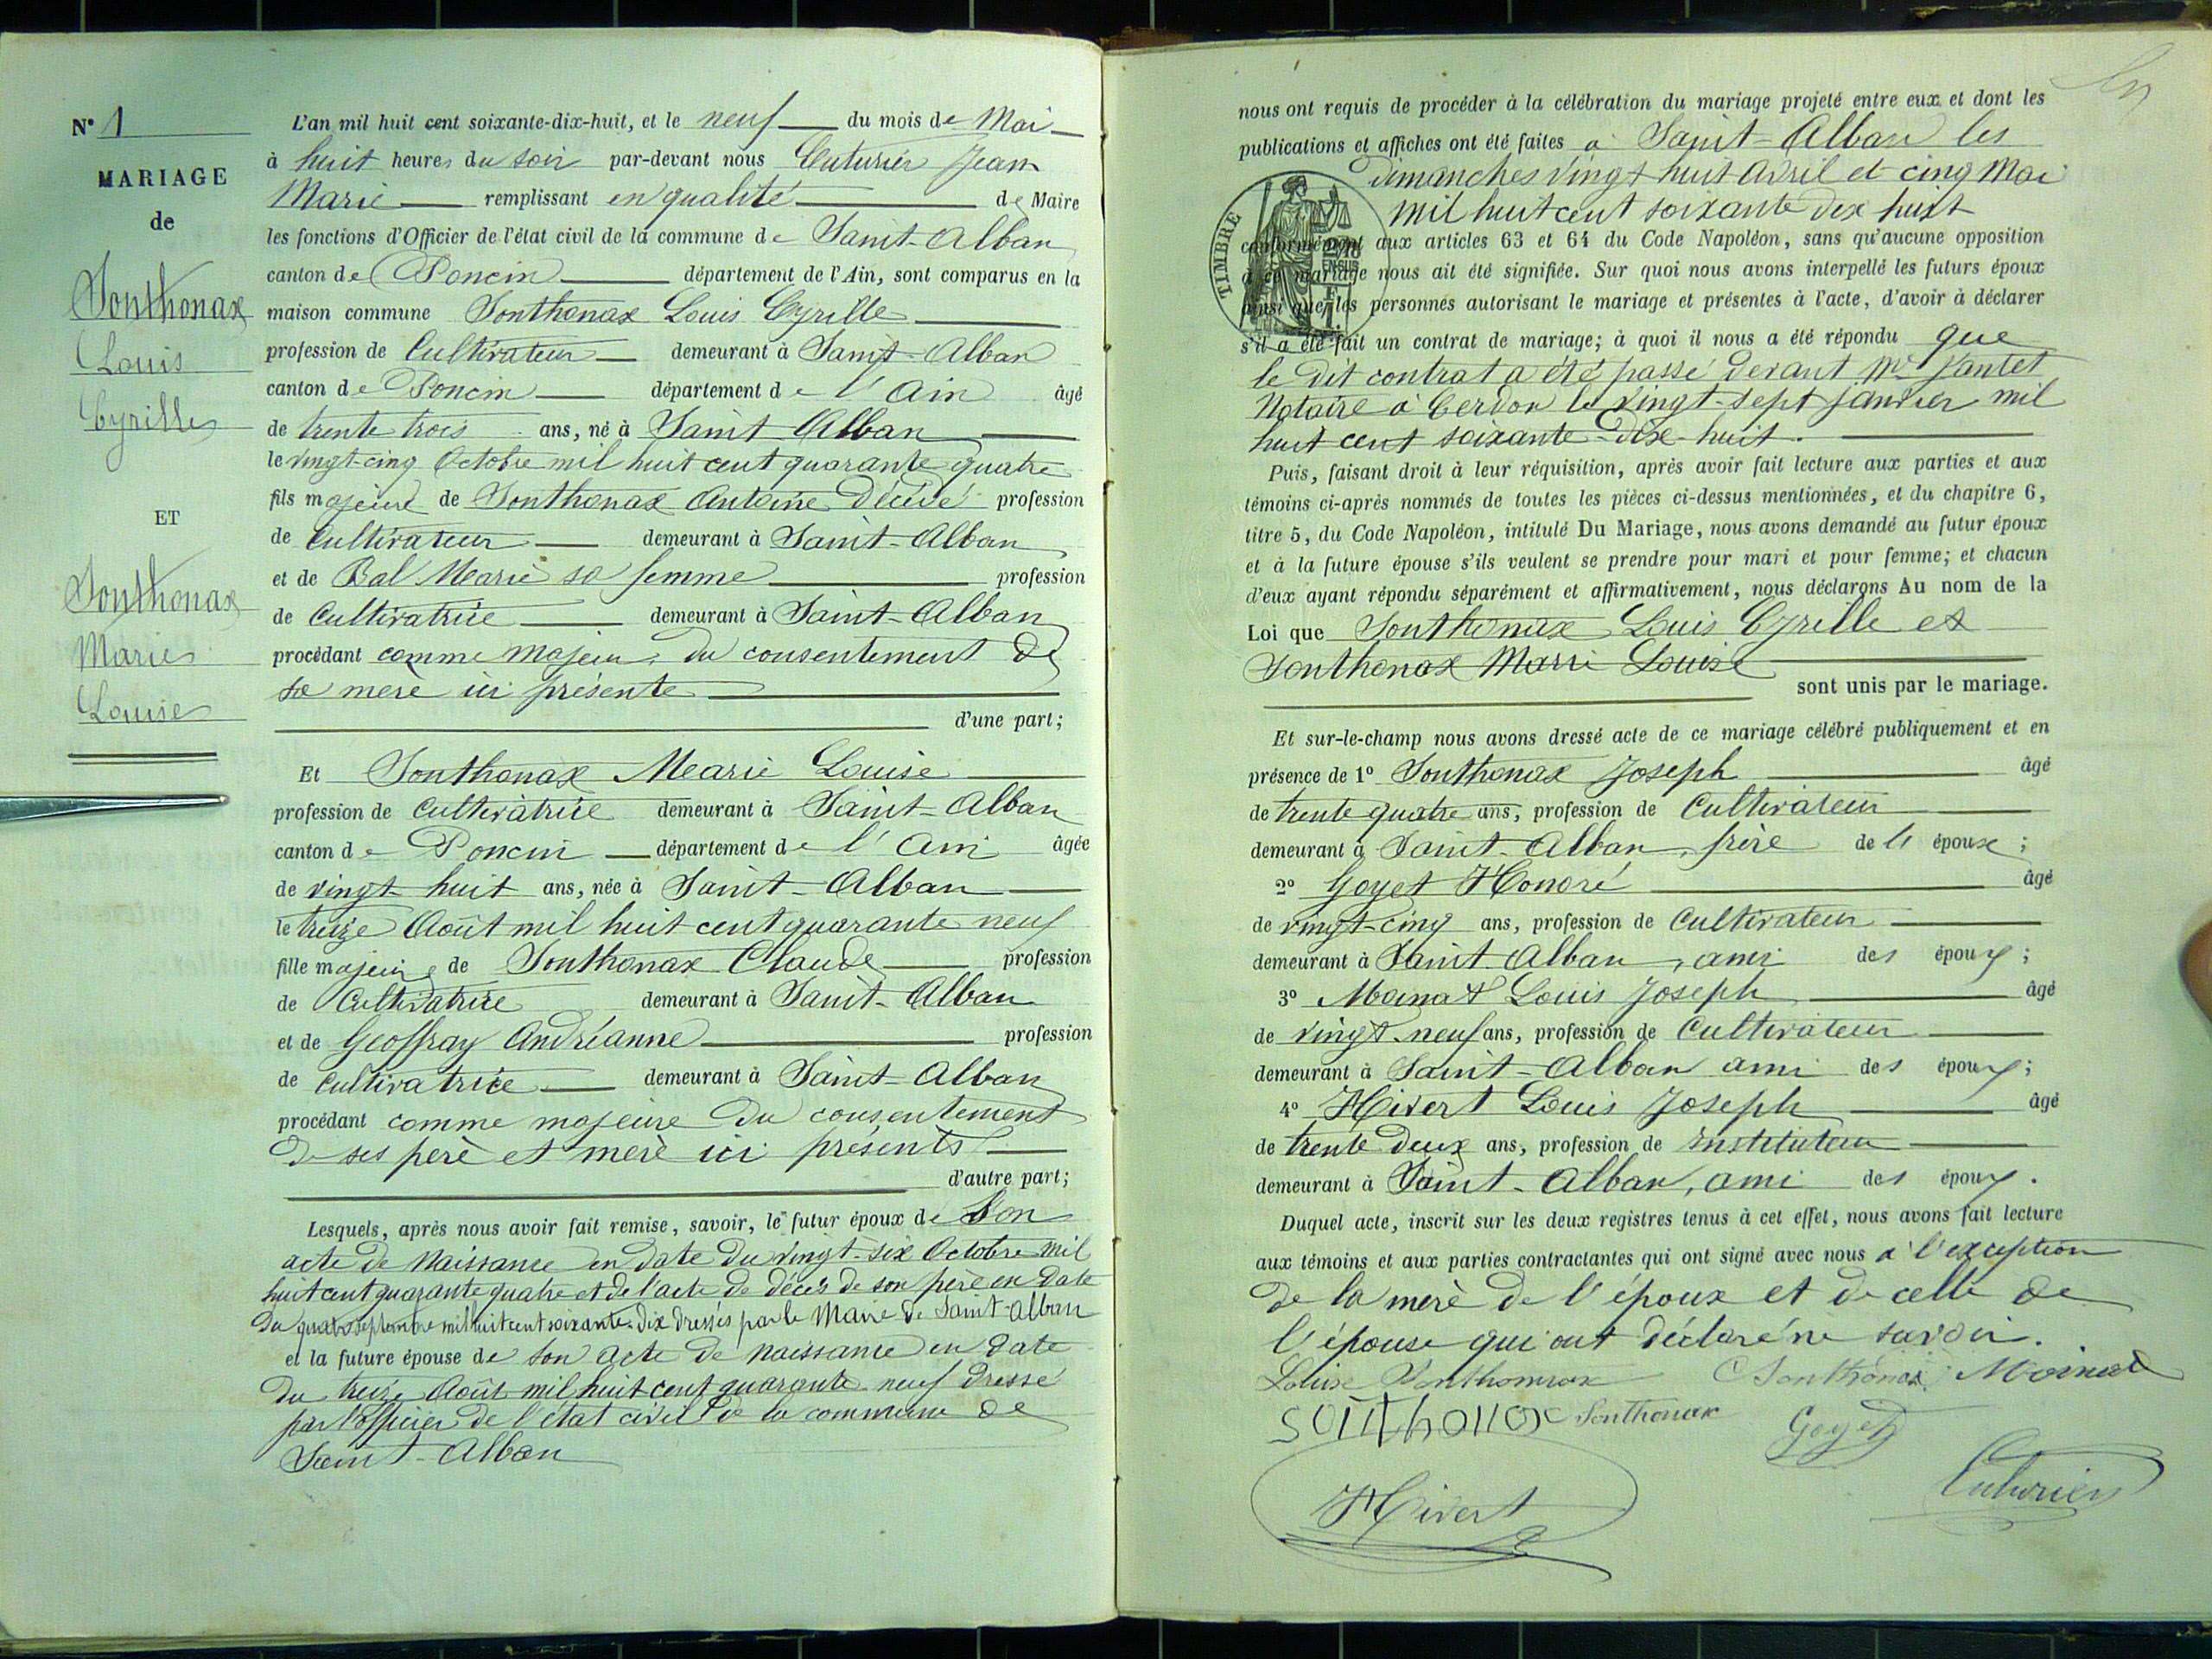 N° 1
MARIAGE
de
Sonthonax
Louis
Cyrille
ET
Sonthonax
Marie
Louise
L'an mil huit cent soixante-dix-huit, et le neuf du mois de Mai
à huit heures du soir par-devant nous Cuturier Jean
Marie remplissant en qualité de Maire
les fonctions d'Officier de l'état civil de la commune de Saint-Alban
canton de Poncin département de l'Ain, sont comparus en la
maison commune Sonthonax Louis Cyrille
profession de Cultivateur demeurant à Saint-Alban
canton de Poncin département de l'Ain âgé
de trente trois ans, né à Saint-Alban
le vingt-cinq Octobre mil huit cent quarante quatre
fils majeur de Sonthonax Antoine décédé profession
de Cultivateur demeurant à Saint-Alban
et de Bal Marie sa femme profession
de Cultivatrice demeurant à Saint-Alban
procédant comme majeur, du consentement de
sa mère ici présente
d'une part;
Et Sonthonax Marie Louise
profession de Cultivatrice demeurant à Saint-Alban
canton de Poncin département de l'Ain âgée
de vingt huit ans, née à Saint-Alban
le treize Août mil huit cent quarante neuf
fille majeure de Sonthonax Claude profession
de Cultivatrice demeurant à Saint-Alban
et de Geoffray Andréanne profession
de Cultivatrice demeurant à Saint-Alban
procédant comme majeure du consentement
de ses père et mère ici présents
d'autre part;
Lesquels, après nous avoir fait remise, savoir, le futur époux de Son
acte de Naissance en date du vingt-six Octobre mil
huit cent quarante quatre et de l'acte de décès de son père en date
du quatre septembre mil huit cent soixante-dix dressés par le Maire de Saint-Alban
et la future épouse de son acte de naissance en date
du treize Août mil huit cent quarante neuf dressé
par l'officier de l'état civil de la commune de
Saint-Alban
nous ont requis de procéder à la célébration du mariage projeté entre eux et dont les
publications et affiches ont été faites à Saint-Alban les
dimanches vingt huit Avril et cinq Mai
mil huit cent soixante dix huit
TIMBRE
conformément aux articles 63 et 64 du Code Napoléon, sans qu'aucune opposition
à ce mariage nous ait été signifiée. Sur quoi nous avons interpellé les futurs époux
ainsi que les personnes autorisant le mariage et présentes à l'acte, d'avoir à déclarer
s'il a été fait un contrat de mariage; à quoi il nous a été répondu que
le dit contrat a été passé devant Me Jantet
Notaire à Cerdon le vingt-sept janvier mil
huit cent soixante-dix-huit.
Puis, faisant droit à leur réquisition, après avoir fait lecture aux parties et aux
témoins ci-après nommés de toutes les pièces ci-dessus mentionnées, et du chapitre 6,
titre 5, du Code Napoléon, intitulé Du Mariage, nous avons demandé au futur époux
et à la future épouse s'ils veulent se prendre pour mari et pour femme; et chacun
d'eux ayant répondu séparément et affirmativement, nous déclarons Au nom de la
Loi que Sonthonax Louis Cyrille et
Sonthonax Marie Louise
sont unis par le mariage.
Et sur-le-champ nous avons dressé acte de ce mariage célébré publiquement et en
présence de 1° Sonthonax Joseph âgé
de trente quatre ans, profession de Cultivateur
demeurant à Saint-Alban, frère de l'époux;
2° Goyet Honoré âgé
de vingt-cinq ans, profession de Cultivateur
demeurant à Saint-Alban, ami des époux;
3° Moinat Louis Joseph âgé
de vingt-neuf ans, profession de Cultivateur
demeurant à Saint-Alban ami des époux;
4° Hivert Louis Joseph âgé
de trente deux ans, profession de Instituteur
demeurant à Saint-Alban, ami des époux.
Duquel acte, inscrit sur les deux registres tenus à cet effet, nous avons fait lecture
aux témoins et aux parties contractantes qui ont signé avec nous à l'exception
de la mère de l'époux et de celle de
l'épouse qui ont déclaré ne savoir.
Louise Sonthonax C Sonthonax Moinat
Sonthonax Sonthonax Goyet
Hivert Cuturier